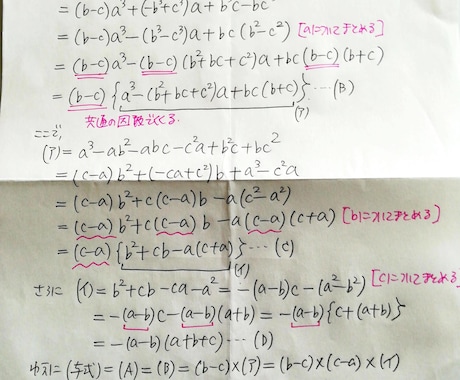 =(b-c)a³+(-b³+c³)a+b³c-bc³
=(b-c)a³-(b³-c³)a+bc(b²-c²) [aについてまとめる]
=(b-c)a³-(b-c)(b²+bc+c²)a+bc(b-c)(b+c)
=(b-c){a³-(b²+bc+c²)a+bc(b+c)}…(B)
共通の因数でくくる. (ア)
ここで,
(ア)=a³-ab²-abc-c²a+b²c+bc²
=(c-a)b²+(-ca+c²)b+a³-c²a
=(c-a)b²+c(c-a)b-a(c²-a²)
=(c-a)b²+c(c-a)b-a(c-a)(c+a) [bについてまとめる]
=(c-a){b²+cb-a(c+a)}…(C)
(イ) [cについてまとめる]
さらに (イ)=b²+cb-ca-a²=-(a-b)c-(a²-b²)
=-(a-b)c-(a-b)(a+b)=-(a-b){c+(a+b)}
=-(a-b)(a+b+c)…(D)
ゆえに(与式)=(A)=(B)=(b-c)×(ア)=(b-c)×(c-a)×(イ)